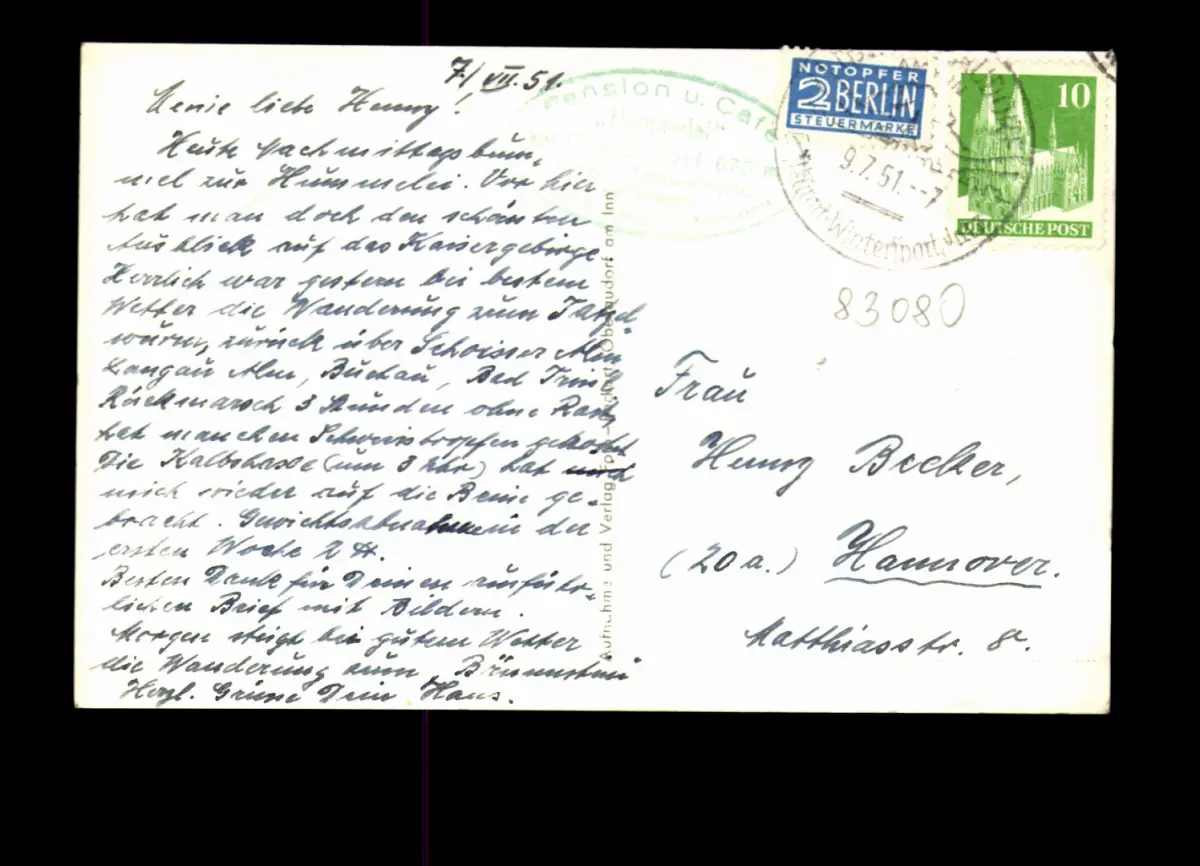 7/VII.51.
Meine liebe Henny!
Heute Nachmittagsbum,
mel zur Hummelei. Von hier
hat man doch den schönsten
Ausblick auf das Kaisergebirge
Herrlich war gestern bei bestem
Wetter die Wanderung zum Tatzel-
wurm, zurück über Schoisser Alm
Langau Alm, Buchau, Bad Trißl
Rückmarsch 3 Stunden ohne Rast,
hat manchen Schweisstropfen gekostet
Die Kalbshaxe (um 3 Uhr) hat
mich wieder auf die Beine ge-
bracht. Gewichtsabnahme in der
ersten Woche 2 ℔.
Besten Dank für Deinen ausführ-
lichen Brief mit Bildern.
Morgen steigt bei gutem Wetter
die Wanderung zum Brünnstein
Herzl. Grüsse Dein Hans.
Pension u. Café
„Hummelei"
Aufnahme und Verlag Oberaudorf am Inn
NOTOPFER
2 BERLIN
STEUERMARKE
9.7.51.--7
10
DEUTSCHE POST
83080
Frau
Henny Becker,
(20a.) Hannover.
Matthiasstr. 8.